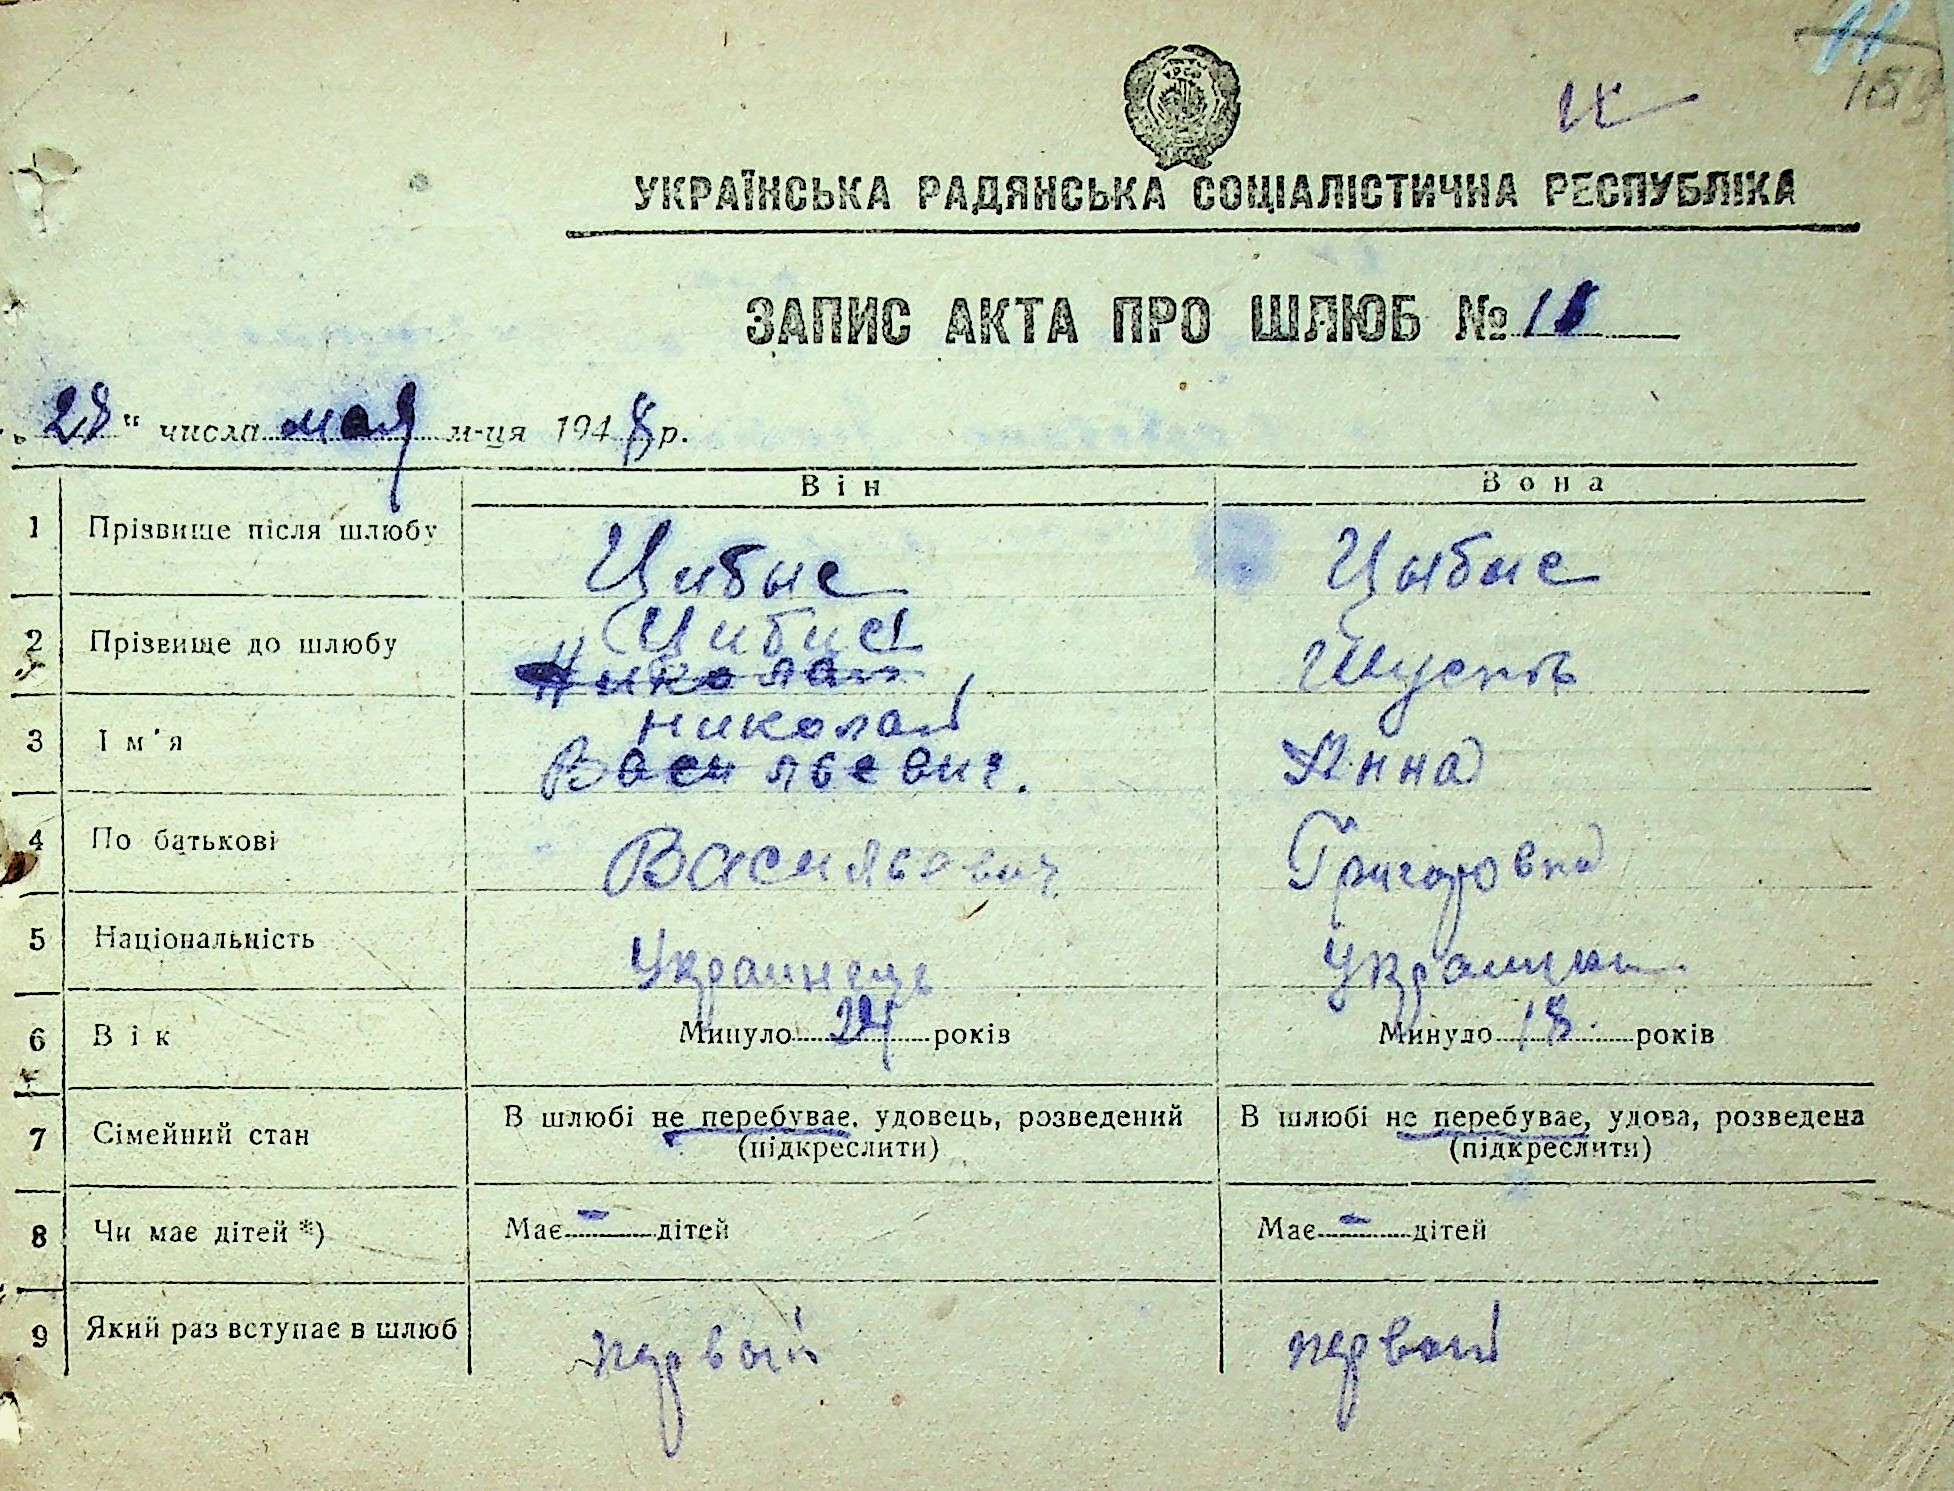 11
УКРАЇНСЬКА РАДЯНСЬКА СОЦІАЛІСТИЧНА РЕСПУБЛІКА
ЗАПИС АКТА ПРО ШЛЮБ №
„28" числа мая м-ця 1948 р.
Він Вона
1 Прізвище після шлюбу Цибые Цыбые
2 Прізвище до шлюбу Цибис
Николай
3 Ім'я Николай Анна
Васильевич.
4 По батькові Васильевич Григоровна
5 Національність Украинець
6 Вік Минуло 24 років Минуло 18 років
7 Сімейний стан В шлюбі не перебуває, удовець, розведений В шлюбі не перебуває, удова, розведена
(підкреслити) (підкреслити)
8 Чи має дітей *) Має - дітей Має - дітей
9 Який раз вступає в шлюб первый первый